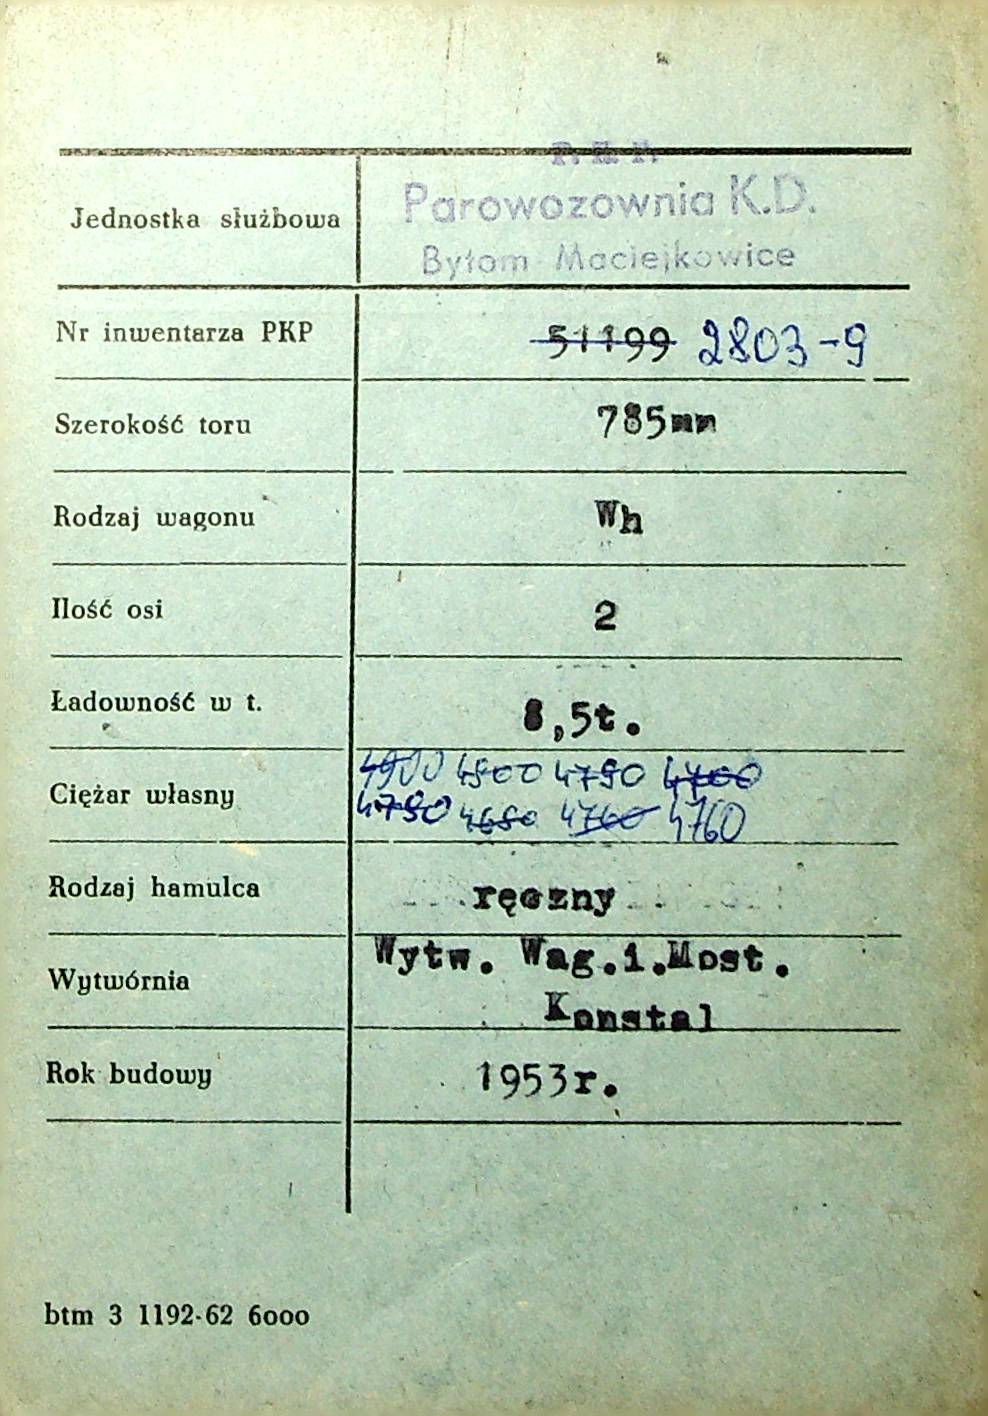 P. K. P.
Parowozownia K.D.
Bytom Maciejkowice
Jednostka służbowa
Nr inwentarza PKP 51199 2803-9
Szerokość toru 785mm
Rodzaj wagonu Wh
Ilość osi 2
Ładowność w t. 8,5t.
4900 4800 4790 4700
Ciężar własny
4780 4680 4760 4760
Rodzaj hamulca ręczny
Wytw. Wag.i.Most.
Wytwórnia
Konstal
Rok budowy 1953r.
btm 3 1192-62 6ooo